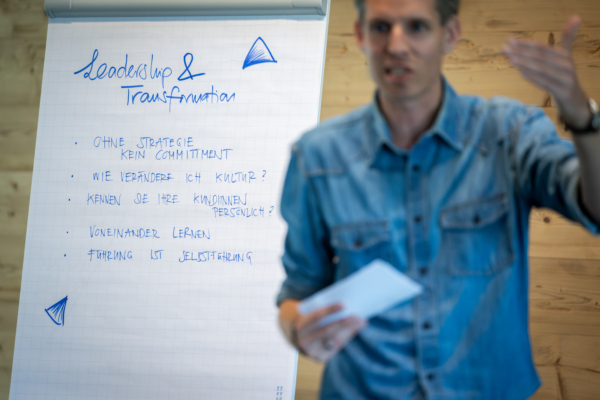 Leadership &
Transformation
· OHNE STRATEGIE
KEIN COMMITTMENT
· WIE VERÄNDERE ICH KULTUR?
· KENNEN SIE IHRE KUNDINNEN
PERSÖNLICH?
· VONEINANDER LERNEN
· FÜHRUNG IST SELBSTFÜHRUNG